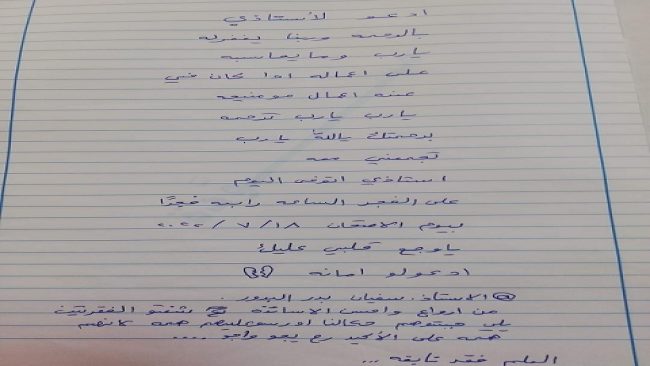 ادعو لأستاذي
بالرحمه وربنا يغفرله
يارب وما يحاسبه
على اعماله اذا كان في
عنه اعمال مو منيحه
يارب يارب ترحمه
برحمتك ياالله يارب
تجمعني معه
استاذي اتوفى اليوم
على الفجر الساعه رابعه فجرًا
بيوم الامتحان ٢٠٢٢/٧/١٨
ياوجع قلبي عليك
ادعولو امانه
الاستاذ. سفيان بدر
من اروع واحسن الاساتذة شفتو الفقرتين
يلي حكالنا همه كانهم
همه على الأكيد رح يجو
العلم فقد تابقه ...